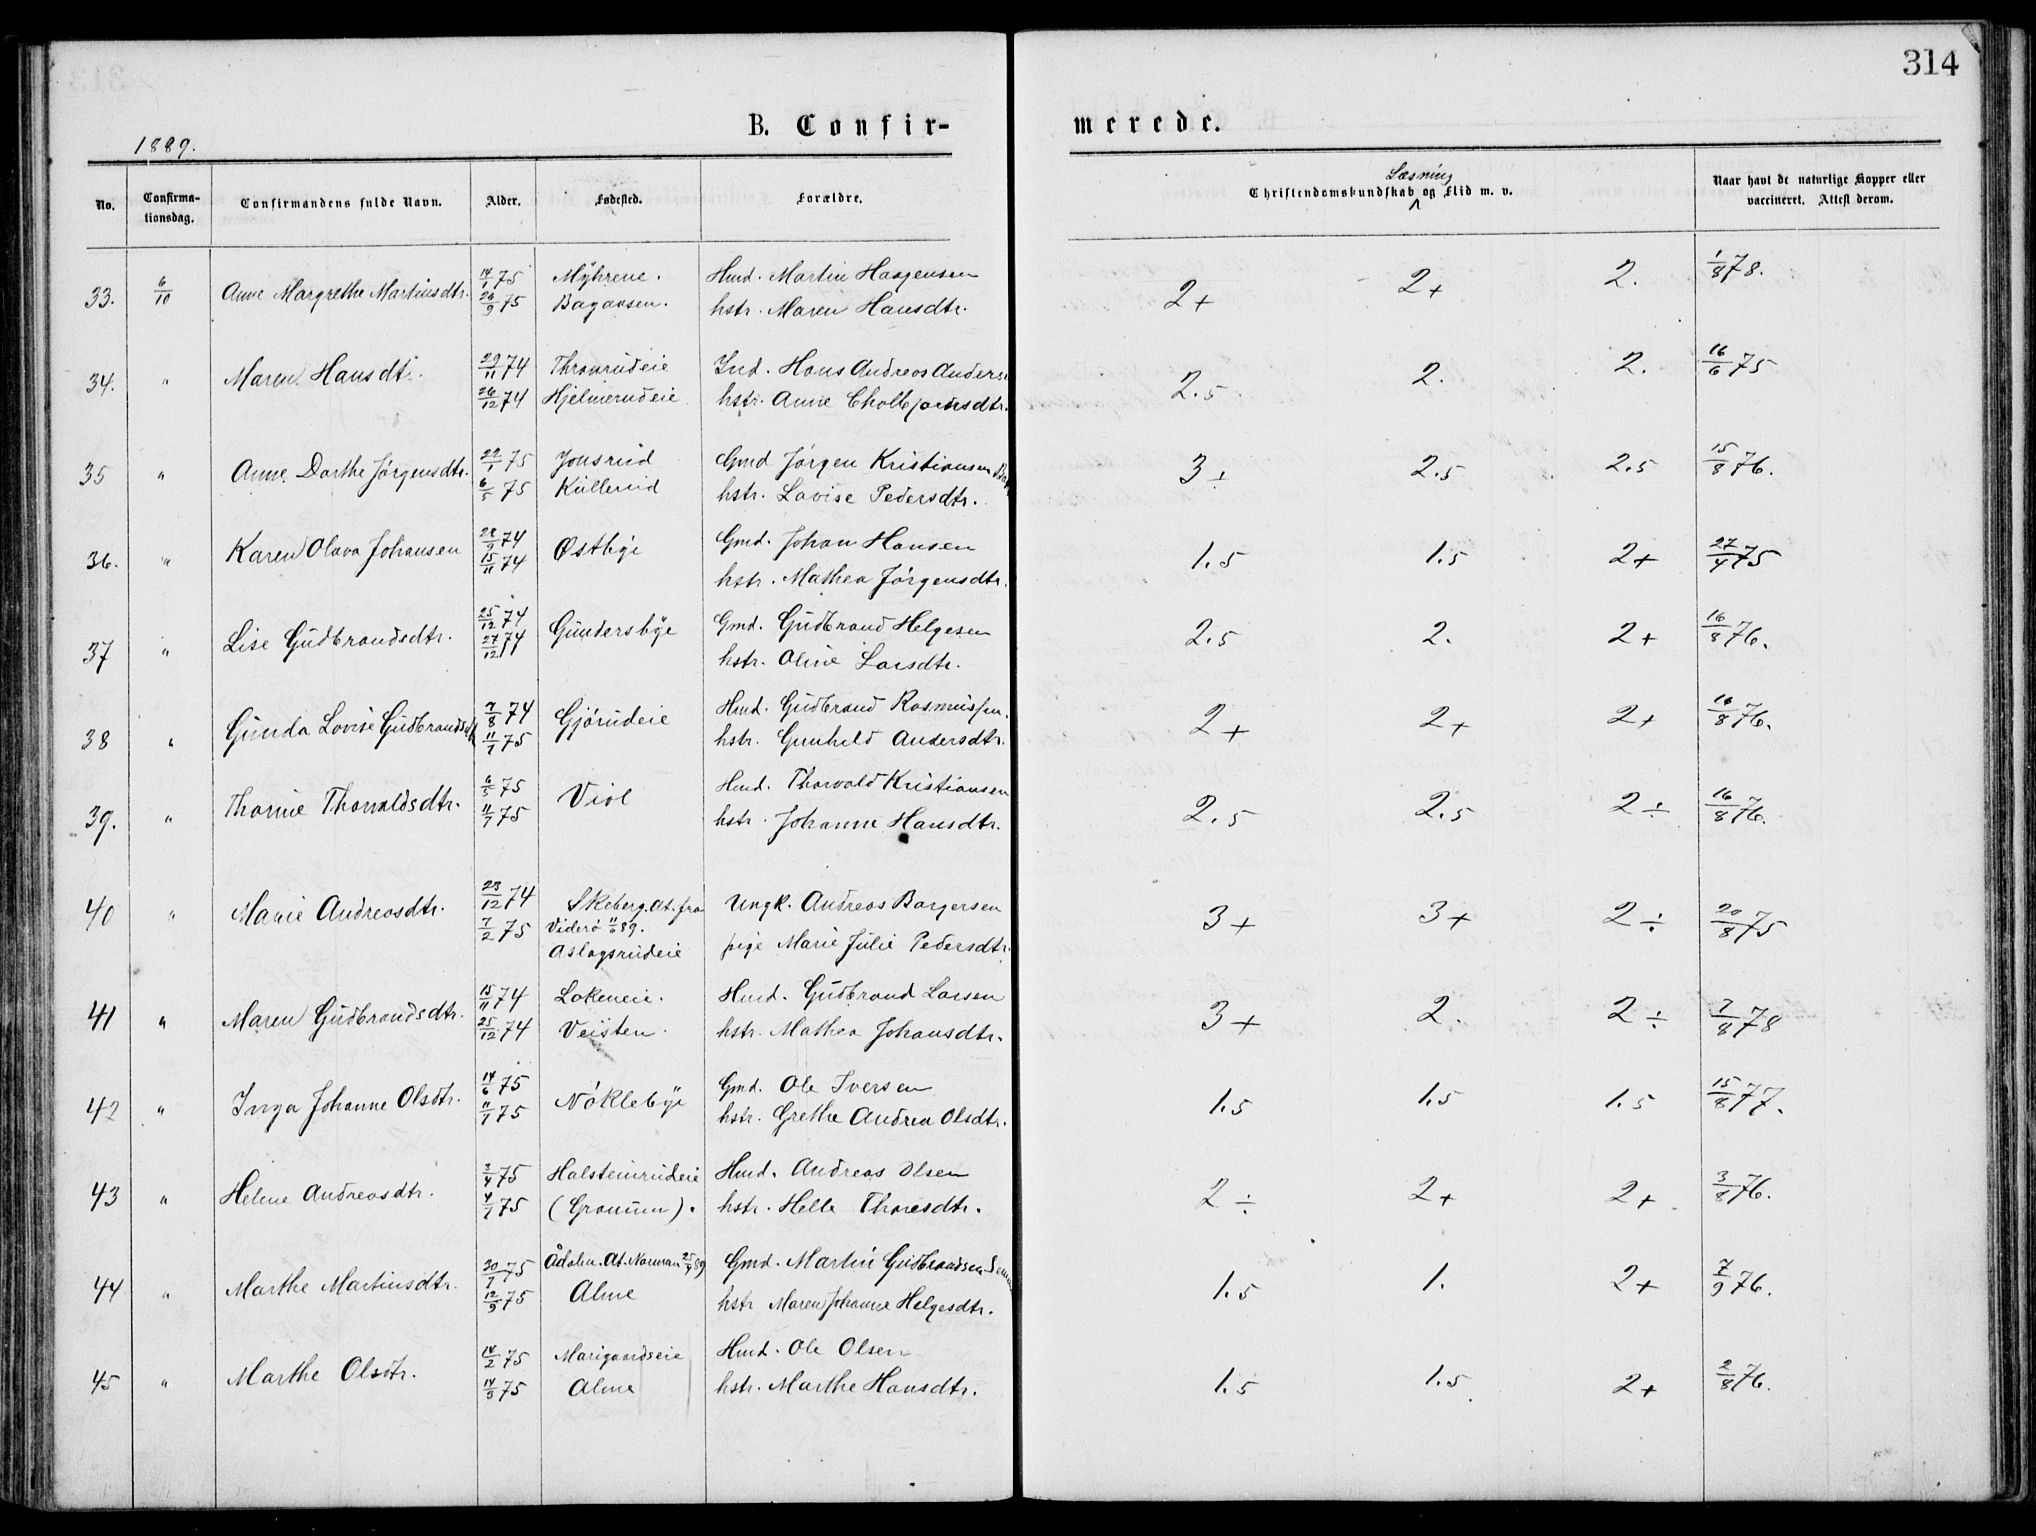 314
B. Confir-
merede.
1889.
No.
Confirma-
tionsdag.
Confirmandens fulde Navn.
Alder.
Fødested.
Forældre.
Læsning
Christendomskundskab og Flid m. v.
Naar havt de naturlige Kopper eller
vaccineret. Attest derom.
33. 6/10 Anne Margrethe Martinsdtr. 14/1 75 Myhrene. Hmd. Martin Haagensen 2+ 2+ 2. 1/8 78.
26/9 75 Bagaasen. hstr. Maren Hansdtr.
34. " Maren Hansdtr. 29/11 74 Thronrudeie Ind. Hans Andreas Anders 2.5 2. 2. 16/6 75
26/12 74 Hjelmerudeie hstr. Anne
35 " Anne Dorthe Jørgensdtr. 22/1 75 Jonsrud Gmd Jørgen Kristiansen 3÷ 2.5 2.5 15/8 76.
6/5 75 Küllerud hstr. Lovise Pedersdtr.
36. " Karen Olava Johansen 28/9 74 Østbye Gmd. Johan Hansen 1.5 1.5 2+ 27/4 75
15/11 74 hstr. Mathea Jørgensdtr.
37 " Lise Gudbrandsdtr. 25/12 74 Gundersbye Gmd. Gudbrand Helgesen 2.5 2. 2+ 16/8 76.
27/12 74 hstr. Oline Larsdtr.
38 " Gunda Lovise Gudbrandsdtr 7/8 74 Gjørudeie Hmd. Gudbrand Rasmussen. 2+ 2+ 2+ 16/8 76.
11/7 75 hstr. Gunhild Andersdtr.
39. " Thorine Thorvaldsdtr. 6/5 75 Viol Hmd. Thorvald Kristiansen 2.5 2.5 2÷ 16/8 76.
11/7 75 hstr. Johanne Hansdtr.
40 " Marie Andreasdtr. 23/12 74 Skeberg. At. fra Ungk. Andreas Borgersen 3+ 3+ 2÷ 20/8 75
7/2 75 Viderø 11/6 89. pige Marie Julie Pedersdtr.
Aslagsrudeie
41 " Maren Gudbrandsdtr. 15/11 74 Lokeneie. Hmd. Gudbrand Larsen 3+ 2. 2÷ 7/8 78
25/12 74 Veisten. hstr. Mathea Johansdtr.
42 " Inga Johanne Olsdtr. 14/6 75 Nøklebye Gmd. Ole Iversen 1.5 1.5 1.5 15/8 77.
11/7 75 hstr. Grethe Andrea Olsdtr.
43 " Helene Andreasdtr. 3/4 75 Holsteinrudeie Hmd. Andreas Olsen 2÷ 2+ 2+ 3/8 76.
4/7 75 (Granum). hstr. Helle Thoresdtr.
44 " Marthe Martinsdtr. 20/7 75 Ådalen. At. Norman 25/9 89 Gmd. Martin Gudbrandsen 1.5 1. 2+ 7/9 76.
12/9 75 Alme hstr Maren Johanne Helgesdtr.
45 " Marthe Olsdtr. 14/2 75 Marigaardseie Hmd. Ole Olsen 1.5 1.5 2+ 2/8 76.
14/3 75 Alme hstr. Marthe Hansdtr.